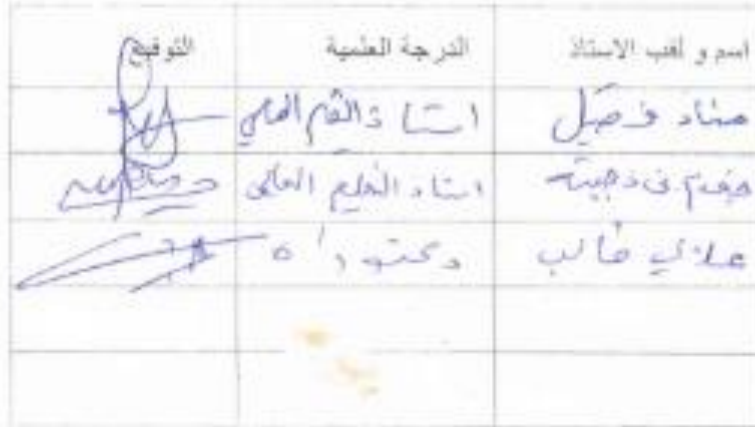 اسم و لقب الاستاذ الدرجة العلمية التوقيع
مناد فيصل استاذ التعليم العالي
استاذ التعليم العالي
علالي طالب دكتوراه